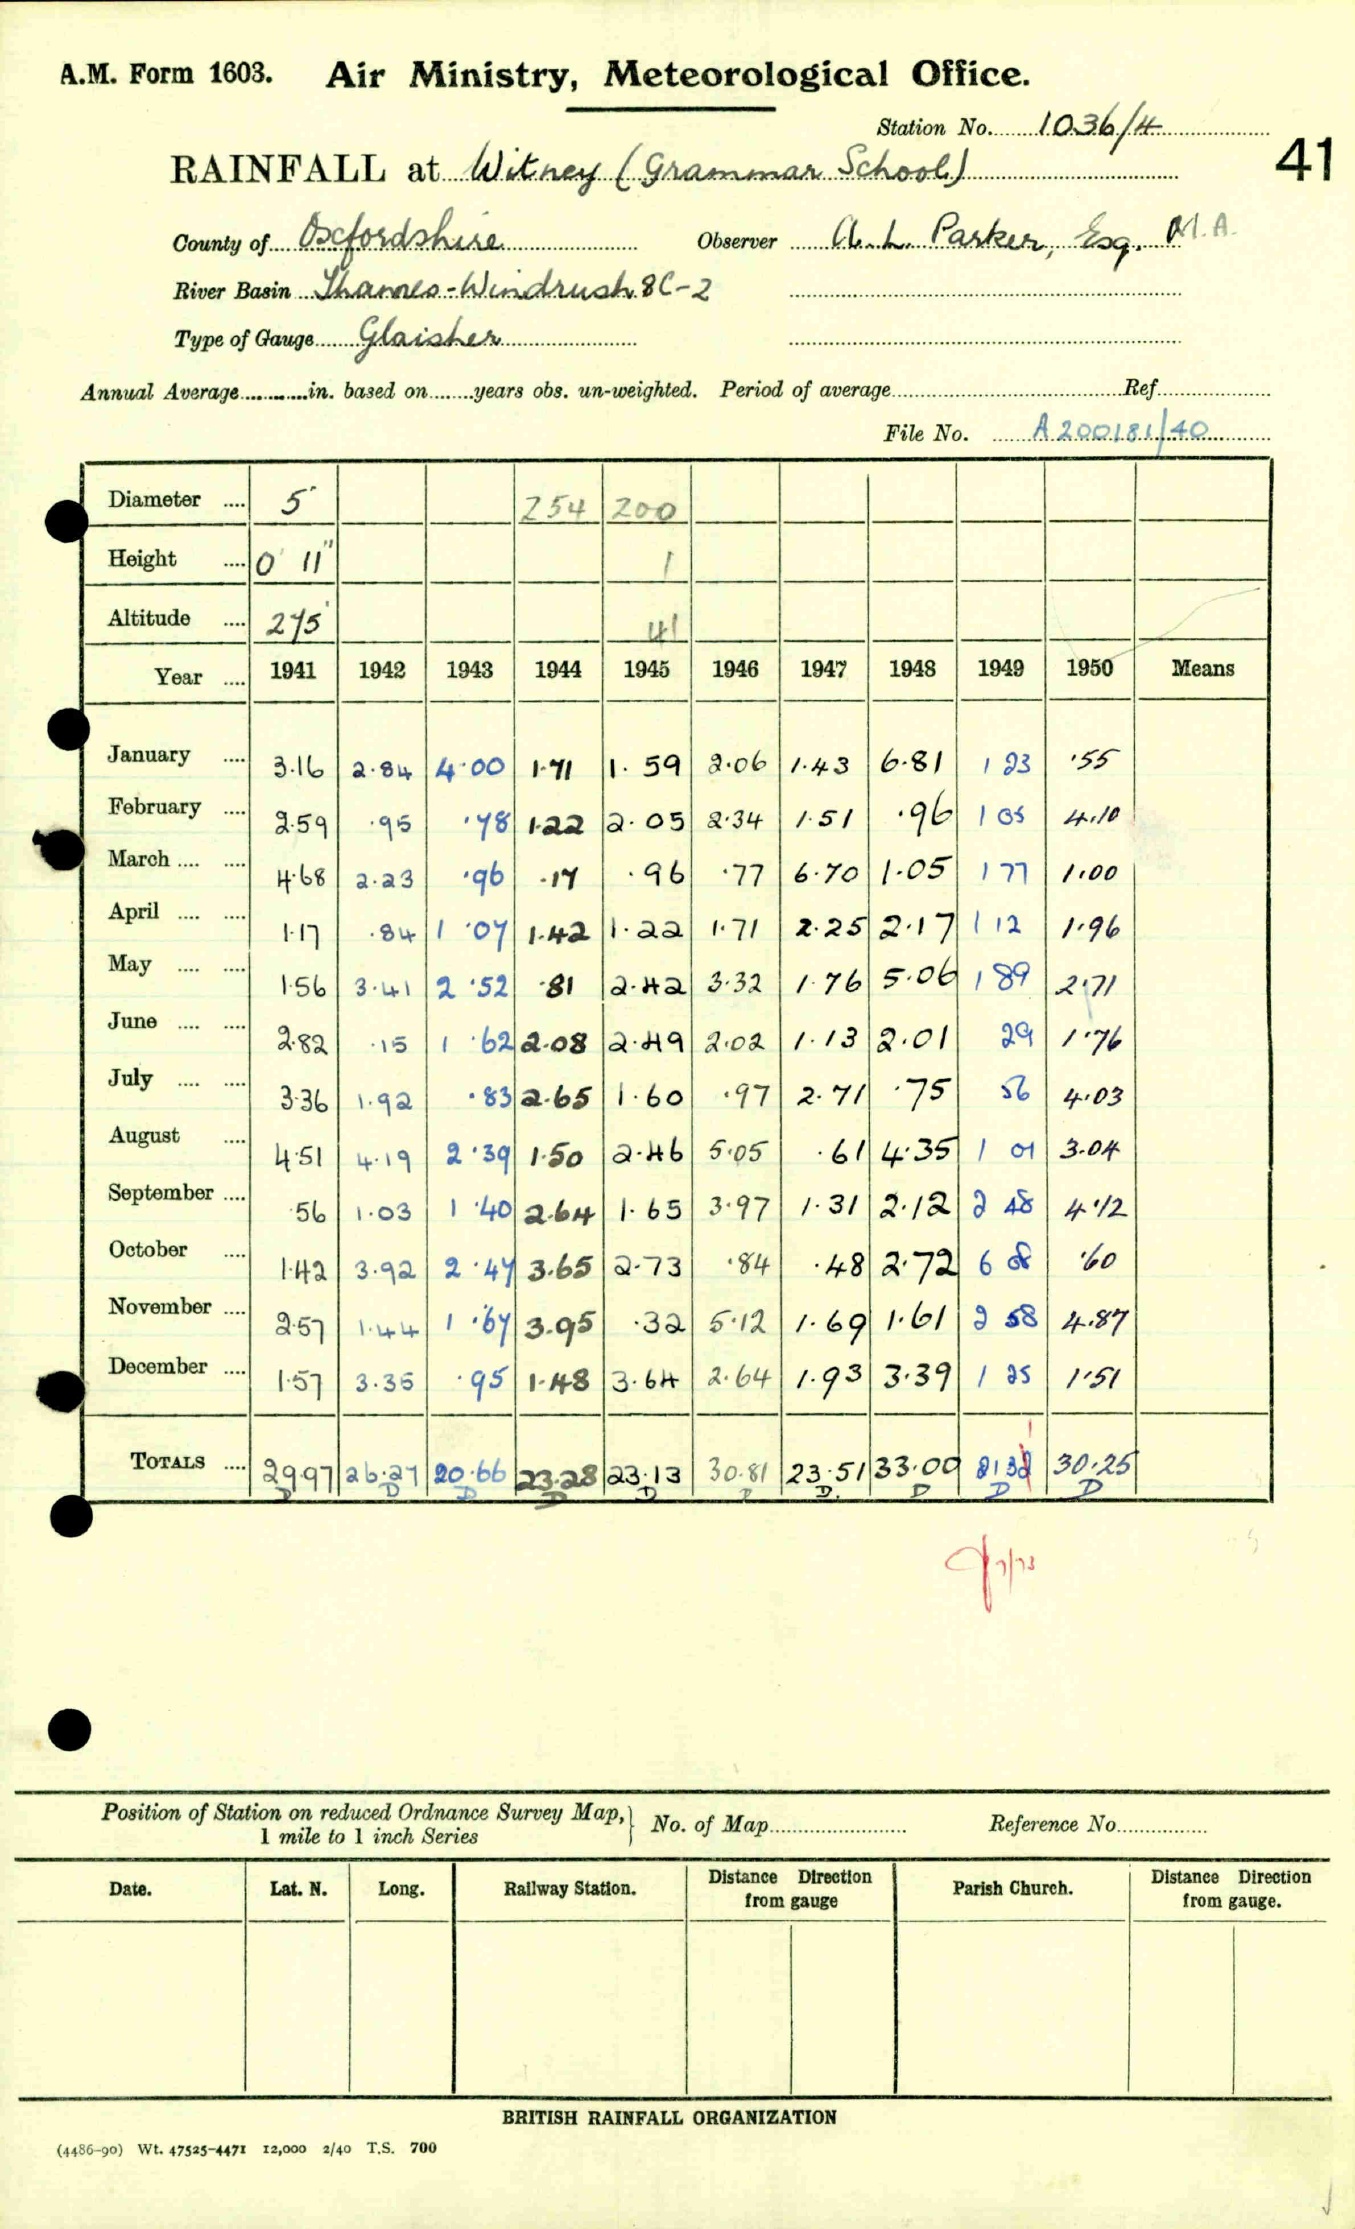 A.M. Form 1603. Air Ministry, Meteorological Office.
Station No. 1036/4
41
RAINFALL at Witney (Grammar School)
County of Oxfordshire Observer A. L. Parker, Esq. M.A.
River Basin Thames-Windrush 8C-2
Type of Gauge Glaisher
Annual Average in. based on years obs. un-weighted. Period of average Ref
File No. A200181/40
Diameter 5" 254 200
Height 0' 11" 1
Altitude 275' 41
Year 1941 1942 1943 1944 1945 1946 1947 1948 1949 1950 Means
January 3.16 2.84 4.00 1.71 1.59 2.06 1.43 6.81 1 23 .55
February 2.59 .95 .78 1.22 2.05 2.34 1.51 .96 1 05 4.10
March 4.68 2.23 .96 .17 .96 .77 6.70 1.05 1 77 1.00
April 1.17 .84 1.07 1.42 1.22 1.71 2.25 2.17 1 12 1.96
May 1.56 3.41 2.52 .81 2.42 3.32 1.76 5.06 1 89 2.71
June 2.82 .15 1.62 2.08 2.49 2.02 1.13 2.01 29 1.76
July 3.36 1.92 .83 2.65 1.60 .97 2.71 .75 56 4.03
August 4.51 4.19 2.39 1.50 2.46 5.05 .61 4.35 1 01 3.04
September .56 1.03 1.40 2.64 1.65 3.97 1.31 2.12 2 48 4.12
October 1.42 3.92 2.47 3.65 2.73 .84 .48 2.72 6 08 .60
November 2.57 1.44 1.67 3.95 .32 5.12 1.69 1.61 2 58 4.87
December 1.57 3.35 .95 1.48 3.64 2.64 1.93 3.39 1 25 1.51
TOTALS 29.97 26.27 20.66 23.28 23.13 30.81 23.51 33.00 30.25
D D D D D D D. D D D
Position of Station on reduced Ordnance Survey Map, } No. of Map Reference No.
1 mile to 1 inch Series
Date. Lat. N. Long. Railway Station. Distance Direction from gauge Parish Church. Distance Direction from gauge.
BRITISH RAINFALL ORGANIZATION
(4486-90) Wt. 47525-4471 12,000 2/40 T.S. 700